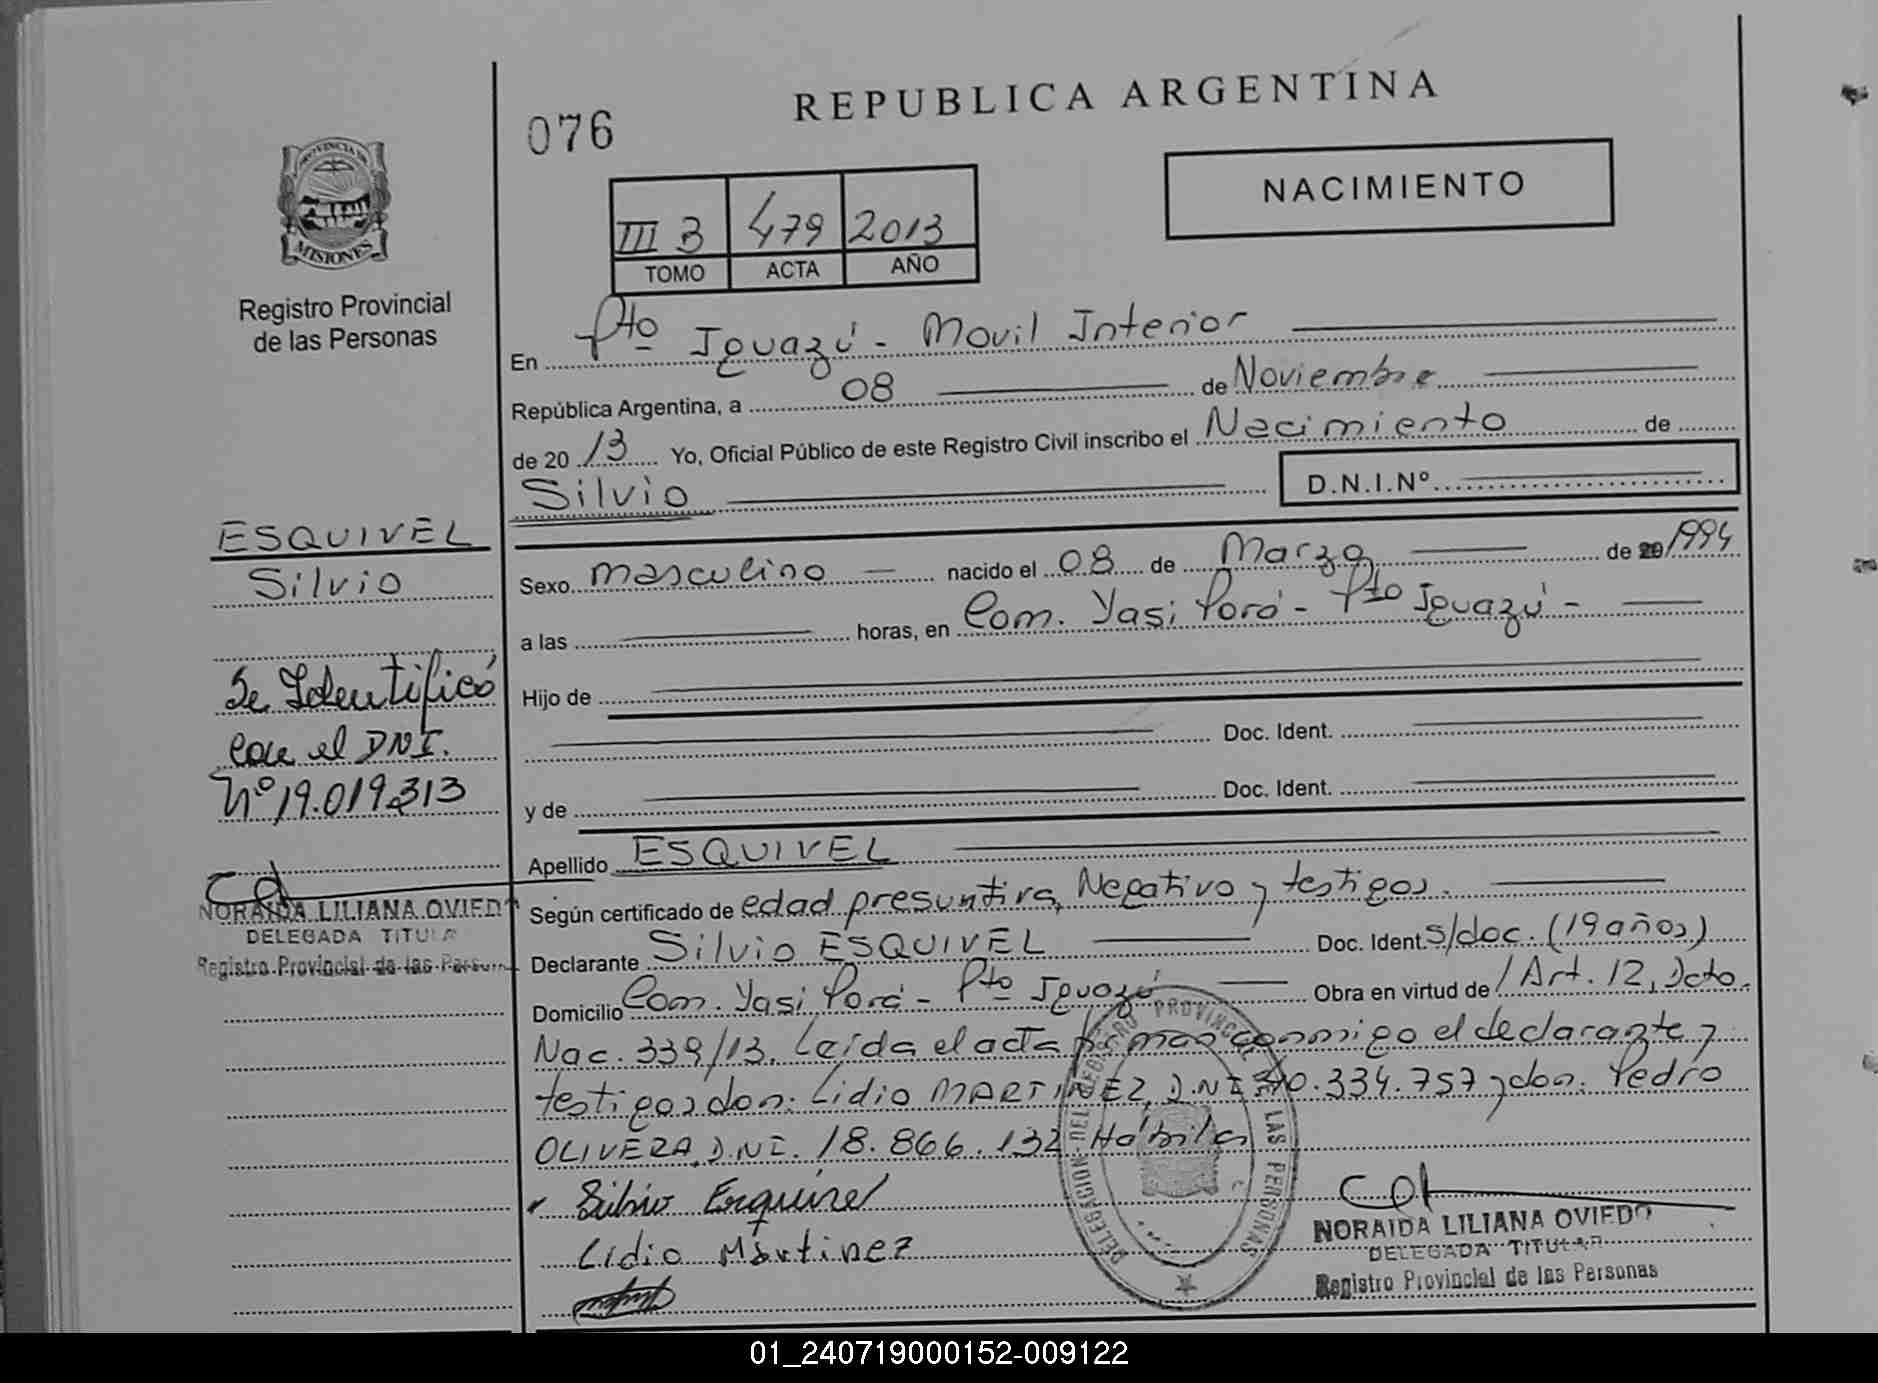 REPUBLICA ARGENTINA
076
NACIMIENTO
PROVINCIA DE
MISIONES
Registro Provincial
de las Personas
III B 479 2013
TOMO ACTA AÑO
En Pto Iguazú - Movil Interior
República Argentina, a 08 de Noviembre
de 20 13 Yo, Oficial Público de este Registro Civil inscribo el Nacimiento de
Silvio D.N.I.Nº
ESQUIVEL
Silvio
Se Identificó
con el DNI.
Nº 19.019.313
NORAIDA LILIANA OVIEDO
DELEGADA TITULA
Registro Provincial de las Person
Sexo masculino nacido el 08 de Marzo de 20 1994
a las horas, en Com. Yasi Porá - Pto Iguazú -
Hijo de
Doc. Ident.
y de Doc. Ident.
Apellido ESQUIVEL
Según certificado de edad presuntiva, Negativo y testigos.
Declarante Silvio ESQUIVEL Doc. Ident. s/doc. (19 años)
Domicilio Com. Yasi Porá - Pto Iguazú Obra en virtud de / Art. 12, Dcto.
Nac. 339/13. Leída el acta firman conmigo el declarante y
testigos don: Lidio MARTINEZ, D.NI 40.334.757 y don: Pedro
OLIVERA, D.NI. 18.866.132 Hábiles
Silvio Esquivel
Lidio Martinez
DELEGACION DEL REGISTRO PROVINCIAL DE LAS PERSONAS
NORAIDA LILIANA OVIEDO
DELEGADA TITULAR
Registro Provincial de las Personas
01_240719000152-009122